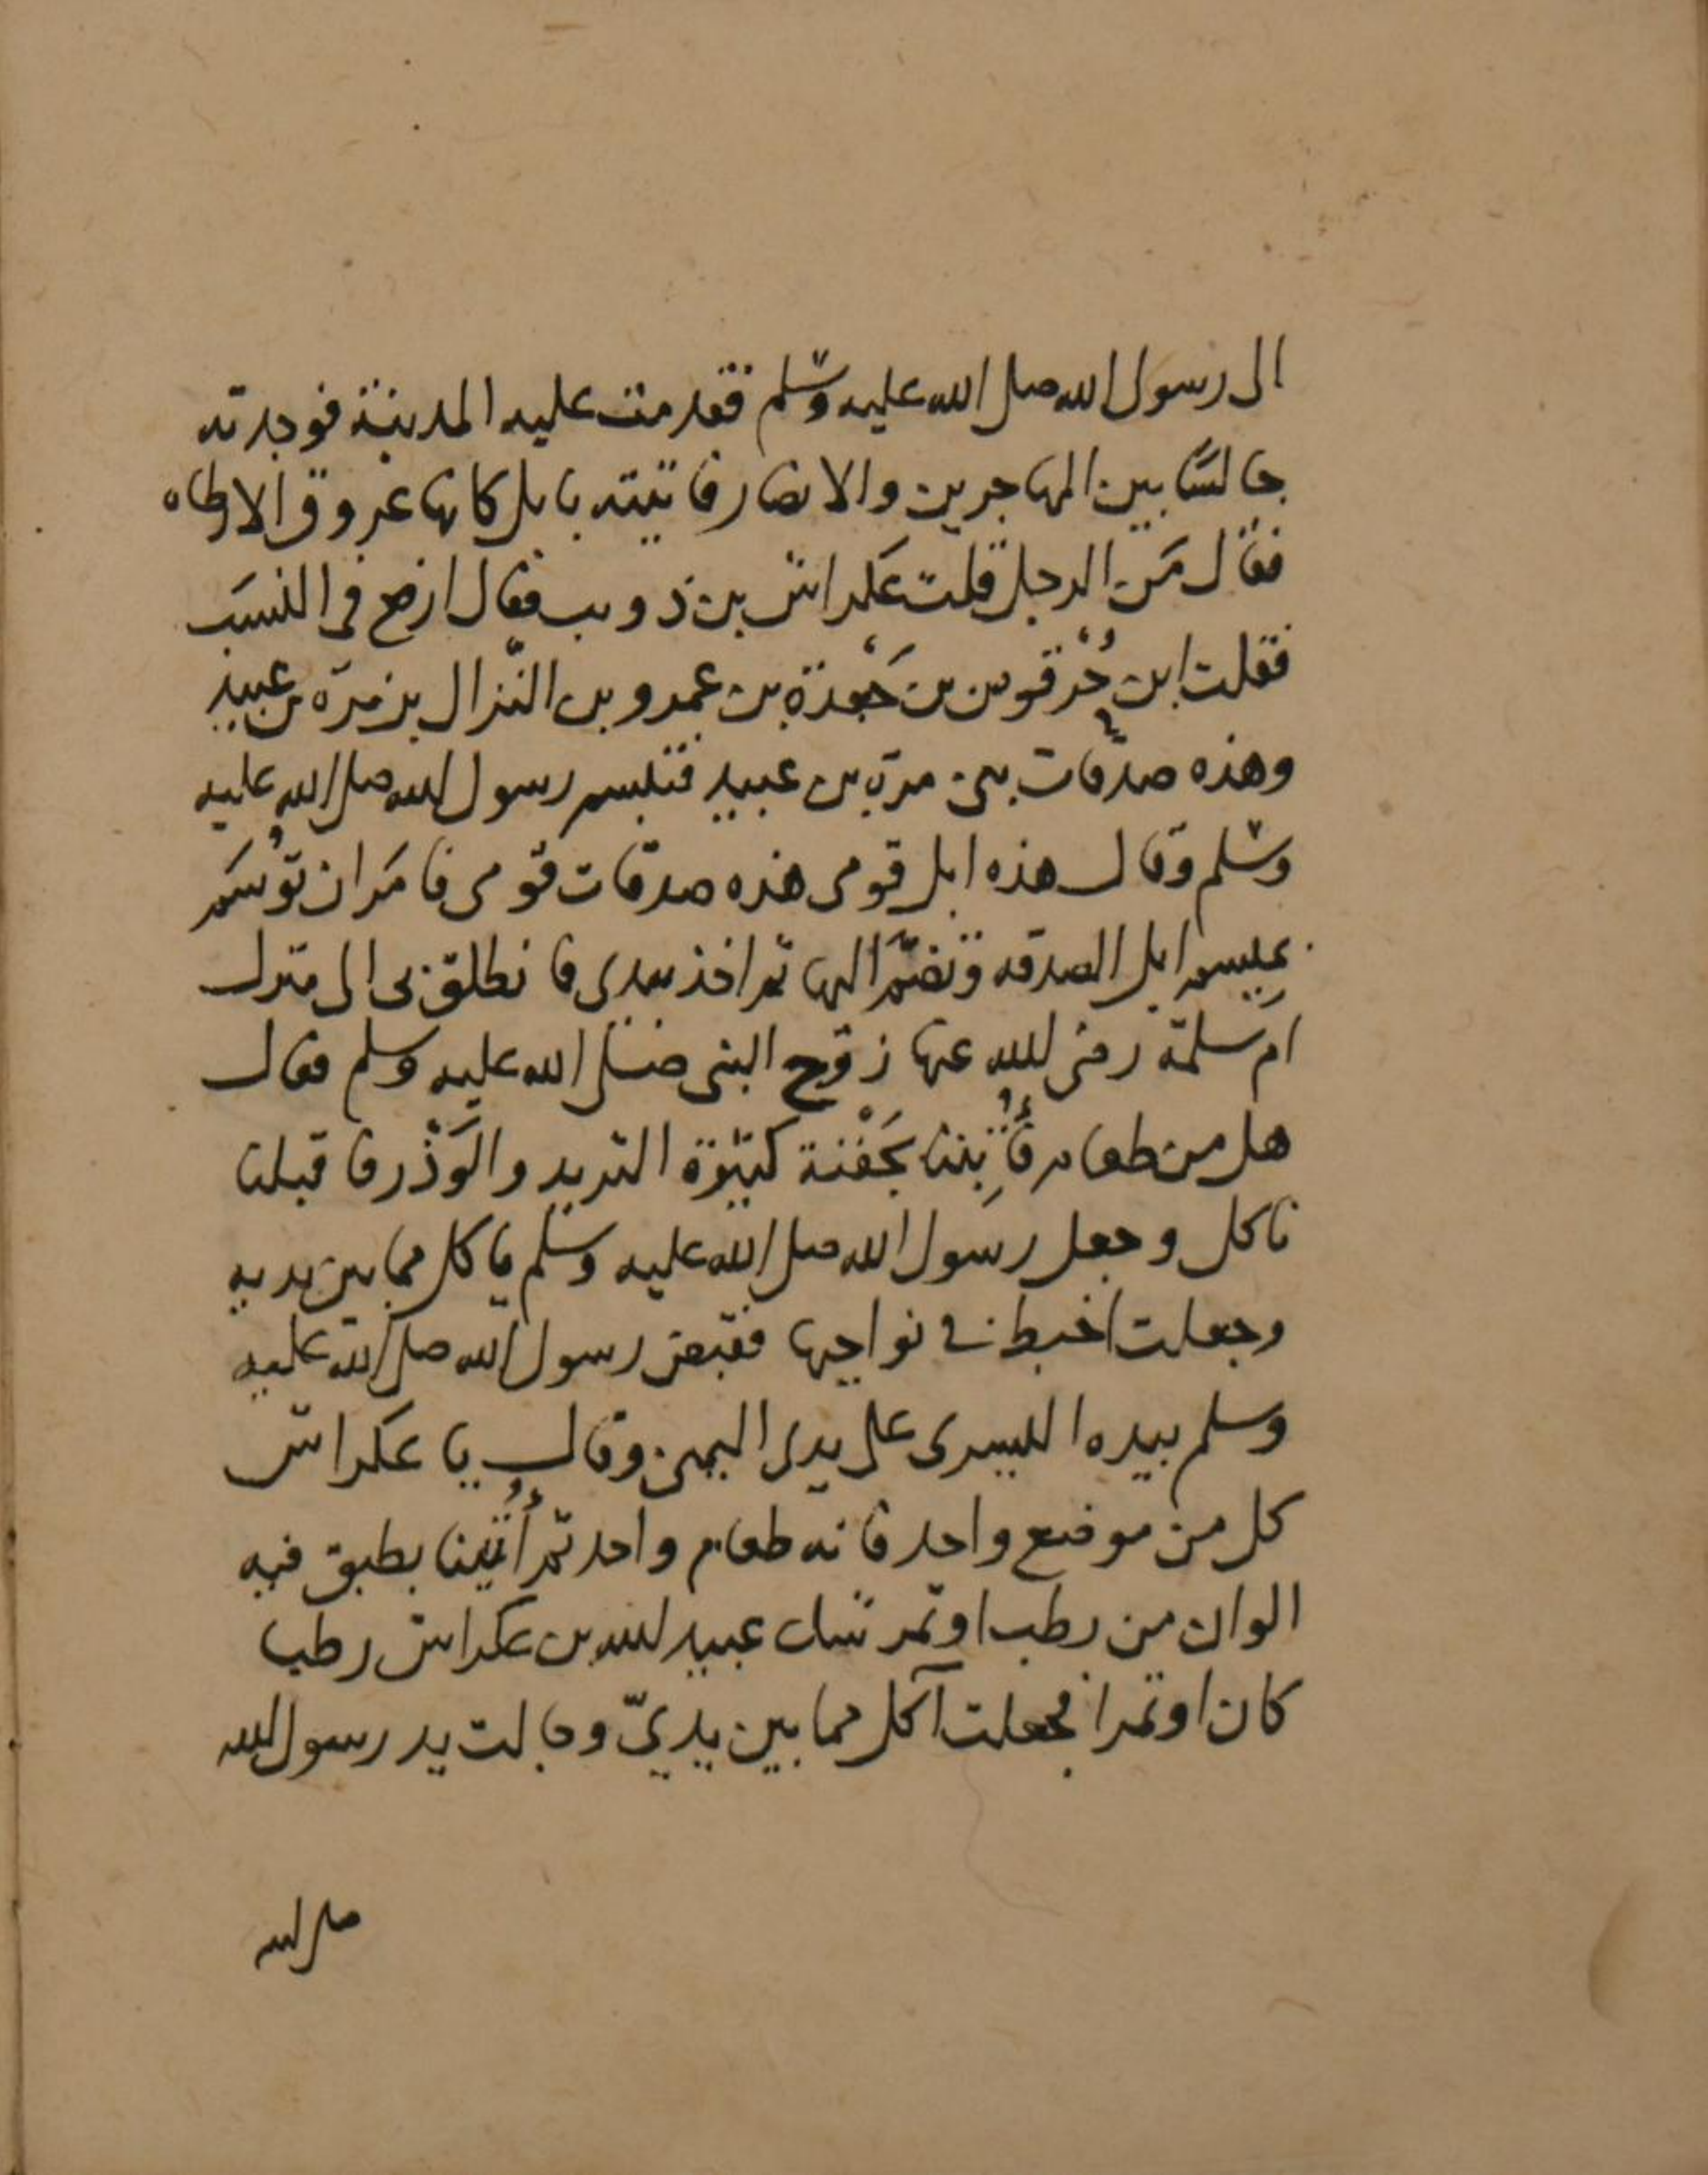 الى رسول الله صلى الله عليه وسلم فقدمت عليه المدينة فوجدته
جالسًا بين المهاجرين والانصار فاتيته بابل كانها عروق الارطاه
فقال مَن الرجل قلت عكراش بن ذويب فقال ارفع في النسَب
فقلت ابن حُرْقوص بن جَعْدَة بن عمرو بن النّزال بن مرّة بن عبيد
وهذه صدقات بنى مرّة بن عبيد فتبسم رسول الله صلى الله عليه
وسلم وقال هذه ابل قومى هذه صدقات قومى فامَر ان تُوسَم
بِمِيسم ابل الصدقه وتضمّ اليها ثم اخذ بيدى فانطلق بى الى منزل
ام سلمة رضى الله عنها زوج النبى صلى الله عليه وسلم فقال
هل من طعام فأُتِينا بجَفْنة كثيرة الثريد والوَذْر فاقبلنا
ناكل وجعل رسول الله صلى الله عليه وسلم ياكل مما بين يديه
وجعلت اخبط في نواحيها فقبض رسول الله صلى الله عليه
وسلم بيده اليسرى على يدى اليمنى وقال يا عكراش
كل من موضع واحد فانه طعام واحد ثم أُتينا بطبق فيه
الوان من رطب او تمر شك عبيد الله بن عكراش رطبا
كان او تمرا فجعلت آكل مما بين يديّ وجالت يد رسول الله
صلى الله